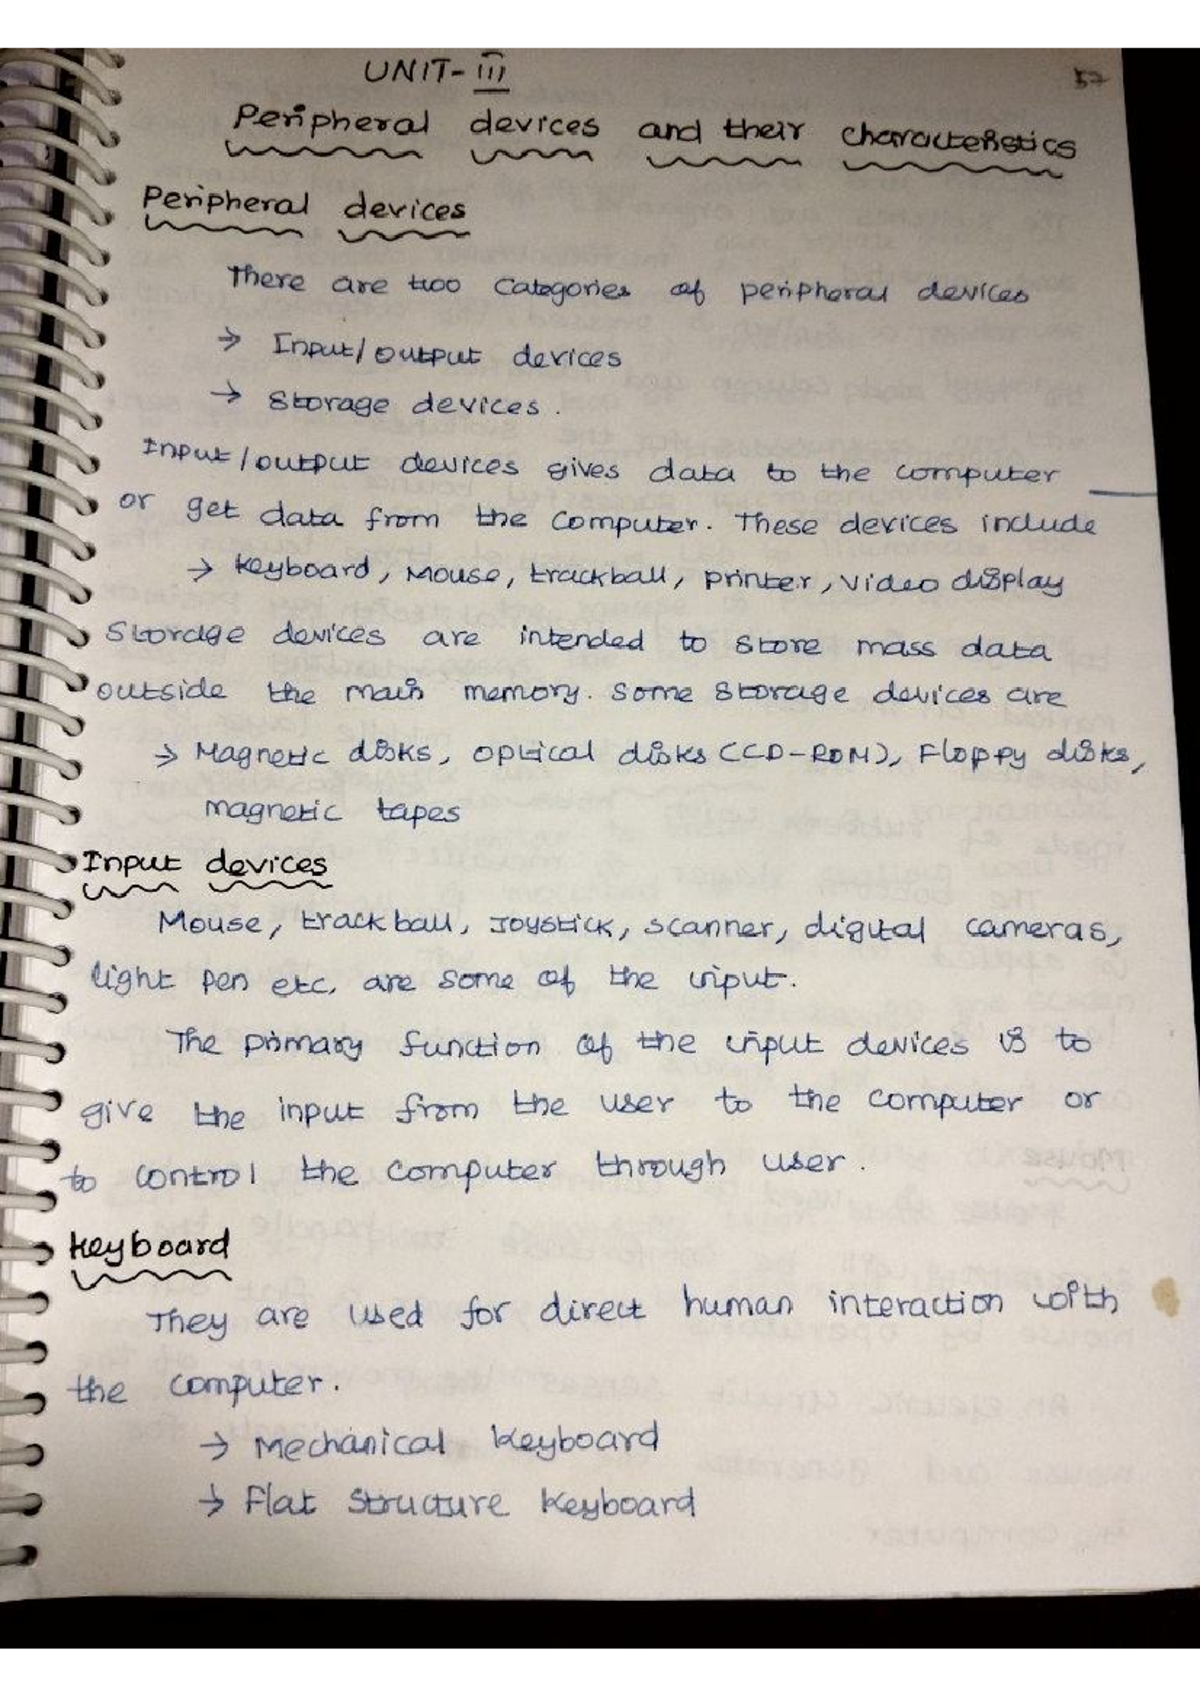 UNIT-III
57
Peripheral devices and their characteristics
Peripheral devices
There are two categories of peripheral devices
→ Input/output devices
→ Storage devices.
Input/output devices gives data to the computer
or get data from the computer. These devices include
→ Keyboard, Mouse, trackball, printer, video display
Storage devices are intended to store mass data
outside the main memory. Some storage devices are
→ Magnetic disks, optical disks (CD-ROM), Floppy disks,
magnetic tapes
Input devices
Mouse, trackball, Joystick, scanner, digital cameras,
light pen etc, are some of the input.
The primary function of the input devices is to
give the input from the user to the computer or
to control the computer through user.
Keyboard
They are used for direct human interaction with
the computer.
→ Mechanical keyboard
→ Flat structure Keyboard